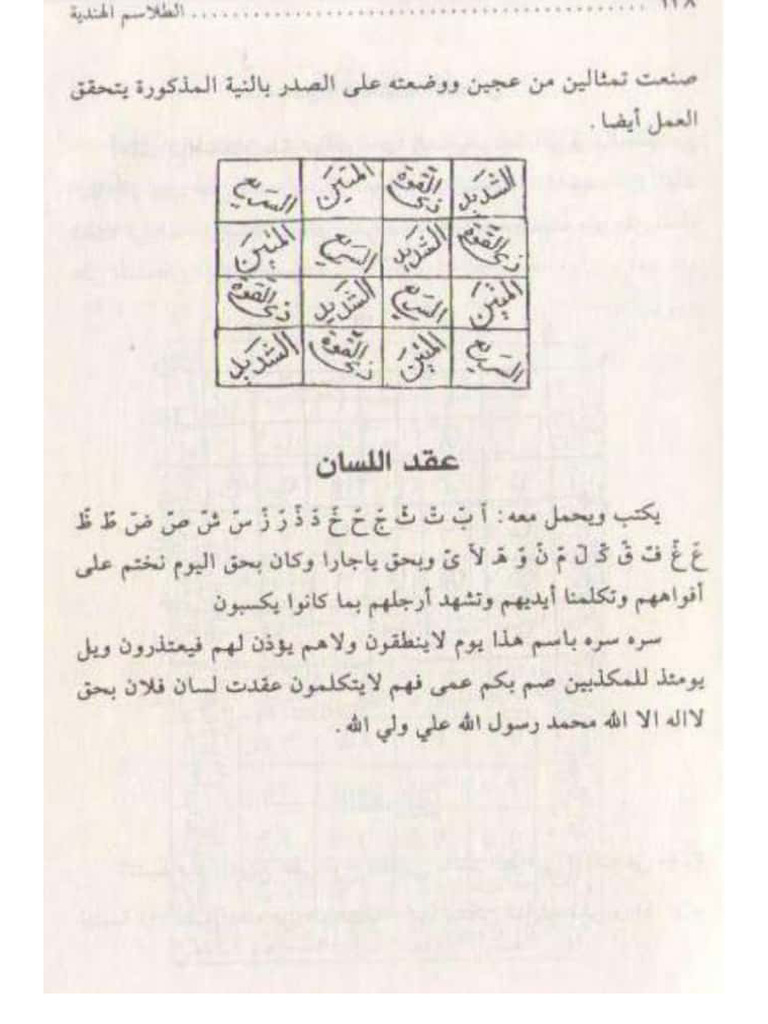 ١٢٨ ........ الطلاسم الهندية
صنعت تمثالين من عجين ووضعته على الصدر بالنية المذكورة يتحقق
العمل أيضا .
الشديد ذى القوة المتين السريع
ذى القوة الشديد السريع المتين
المتين السريع الشديد ذى القوة
السريع المتين ذى القوة الشديد
عقد اللسان
يكتب ويحمل معه : أ بّ تّ ثّ جّ حّ خّ دّ ذّ رّ زّ سّ شّ صّ ضّ طّ ظّ
عّ غّ فّ قّ كّ لّ مّ نّ وّ هّ لاّ ىّ وبحق ياجارا وكان بحق اليوم نختم على
أفواههم وتكلمنا أيديهم وتشهد أرجلهم بما كانوا يكسبون
سره سره باسم هذا يوم لاينطقون ولاهم يؤذن لهم فيعتذرون ويل
يومئذ للمكذبين صم بكم عمى فهم لايتكلمون عقدت لسان فلان بحق
لااله الا الله محمد رسول الله علي ولي الله .